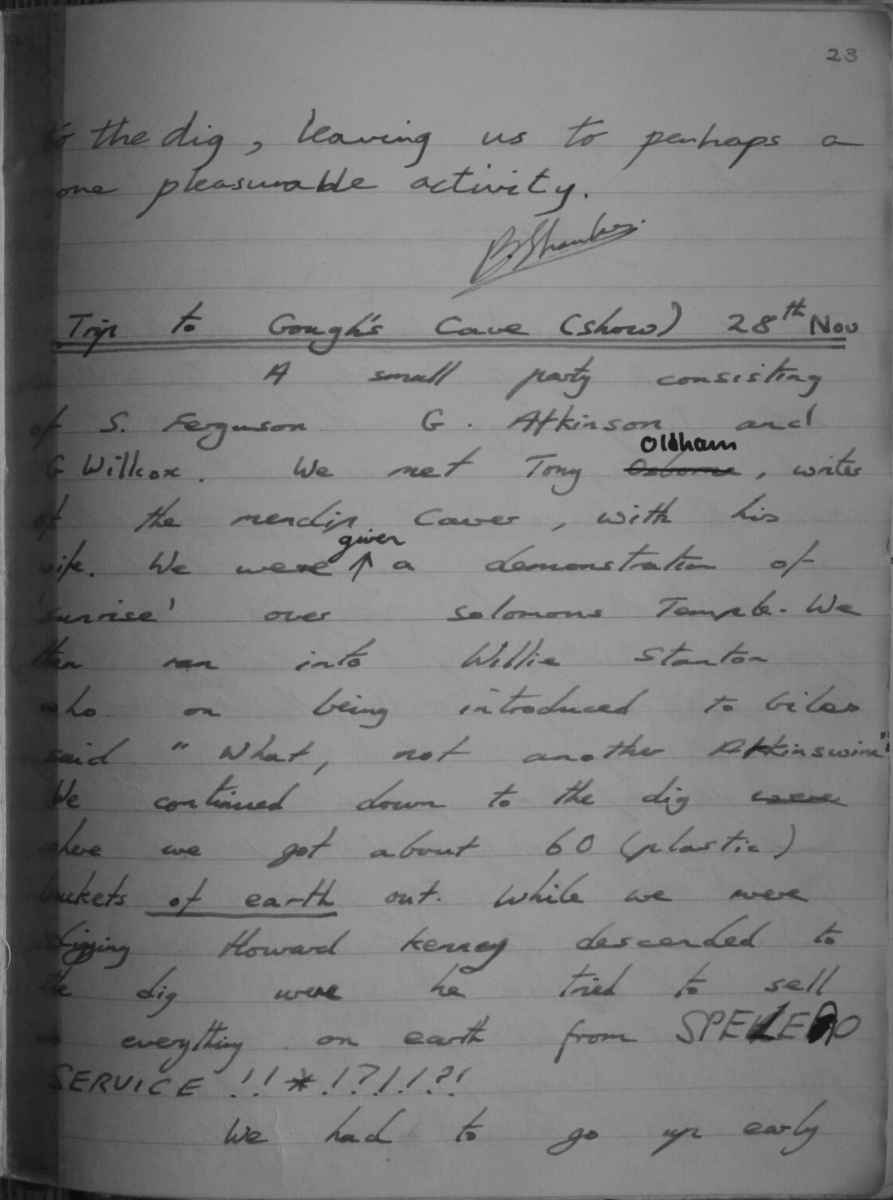 23
to the dig, leaving us to perhaps a
one pleasurable activity.
Trip to Gough's Cave (show) 28th Nov
A small party consisting
of S. Ferguson G. Atkinson and
Oldham
G Willcox. We met Tony Osborne, writer
of the mendip Caves, with his
given
wife. We were ↑ a demonstration of
'sunrise' over solomons Temple. We
then ran into Willie Stanton
who on being introduced to Giles
said "What, not another Atkinswine"
We continued down to the dig were
where we got about 60 (plastic)
buckets of earth out. While we were
digging Howard Kenney descended to
the dig were he tried to sell
everything on earth from SPELEO
SERVICE !!*!?!!?!
We had to go up early